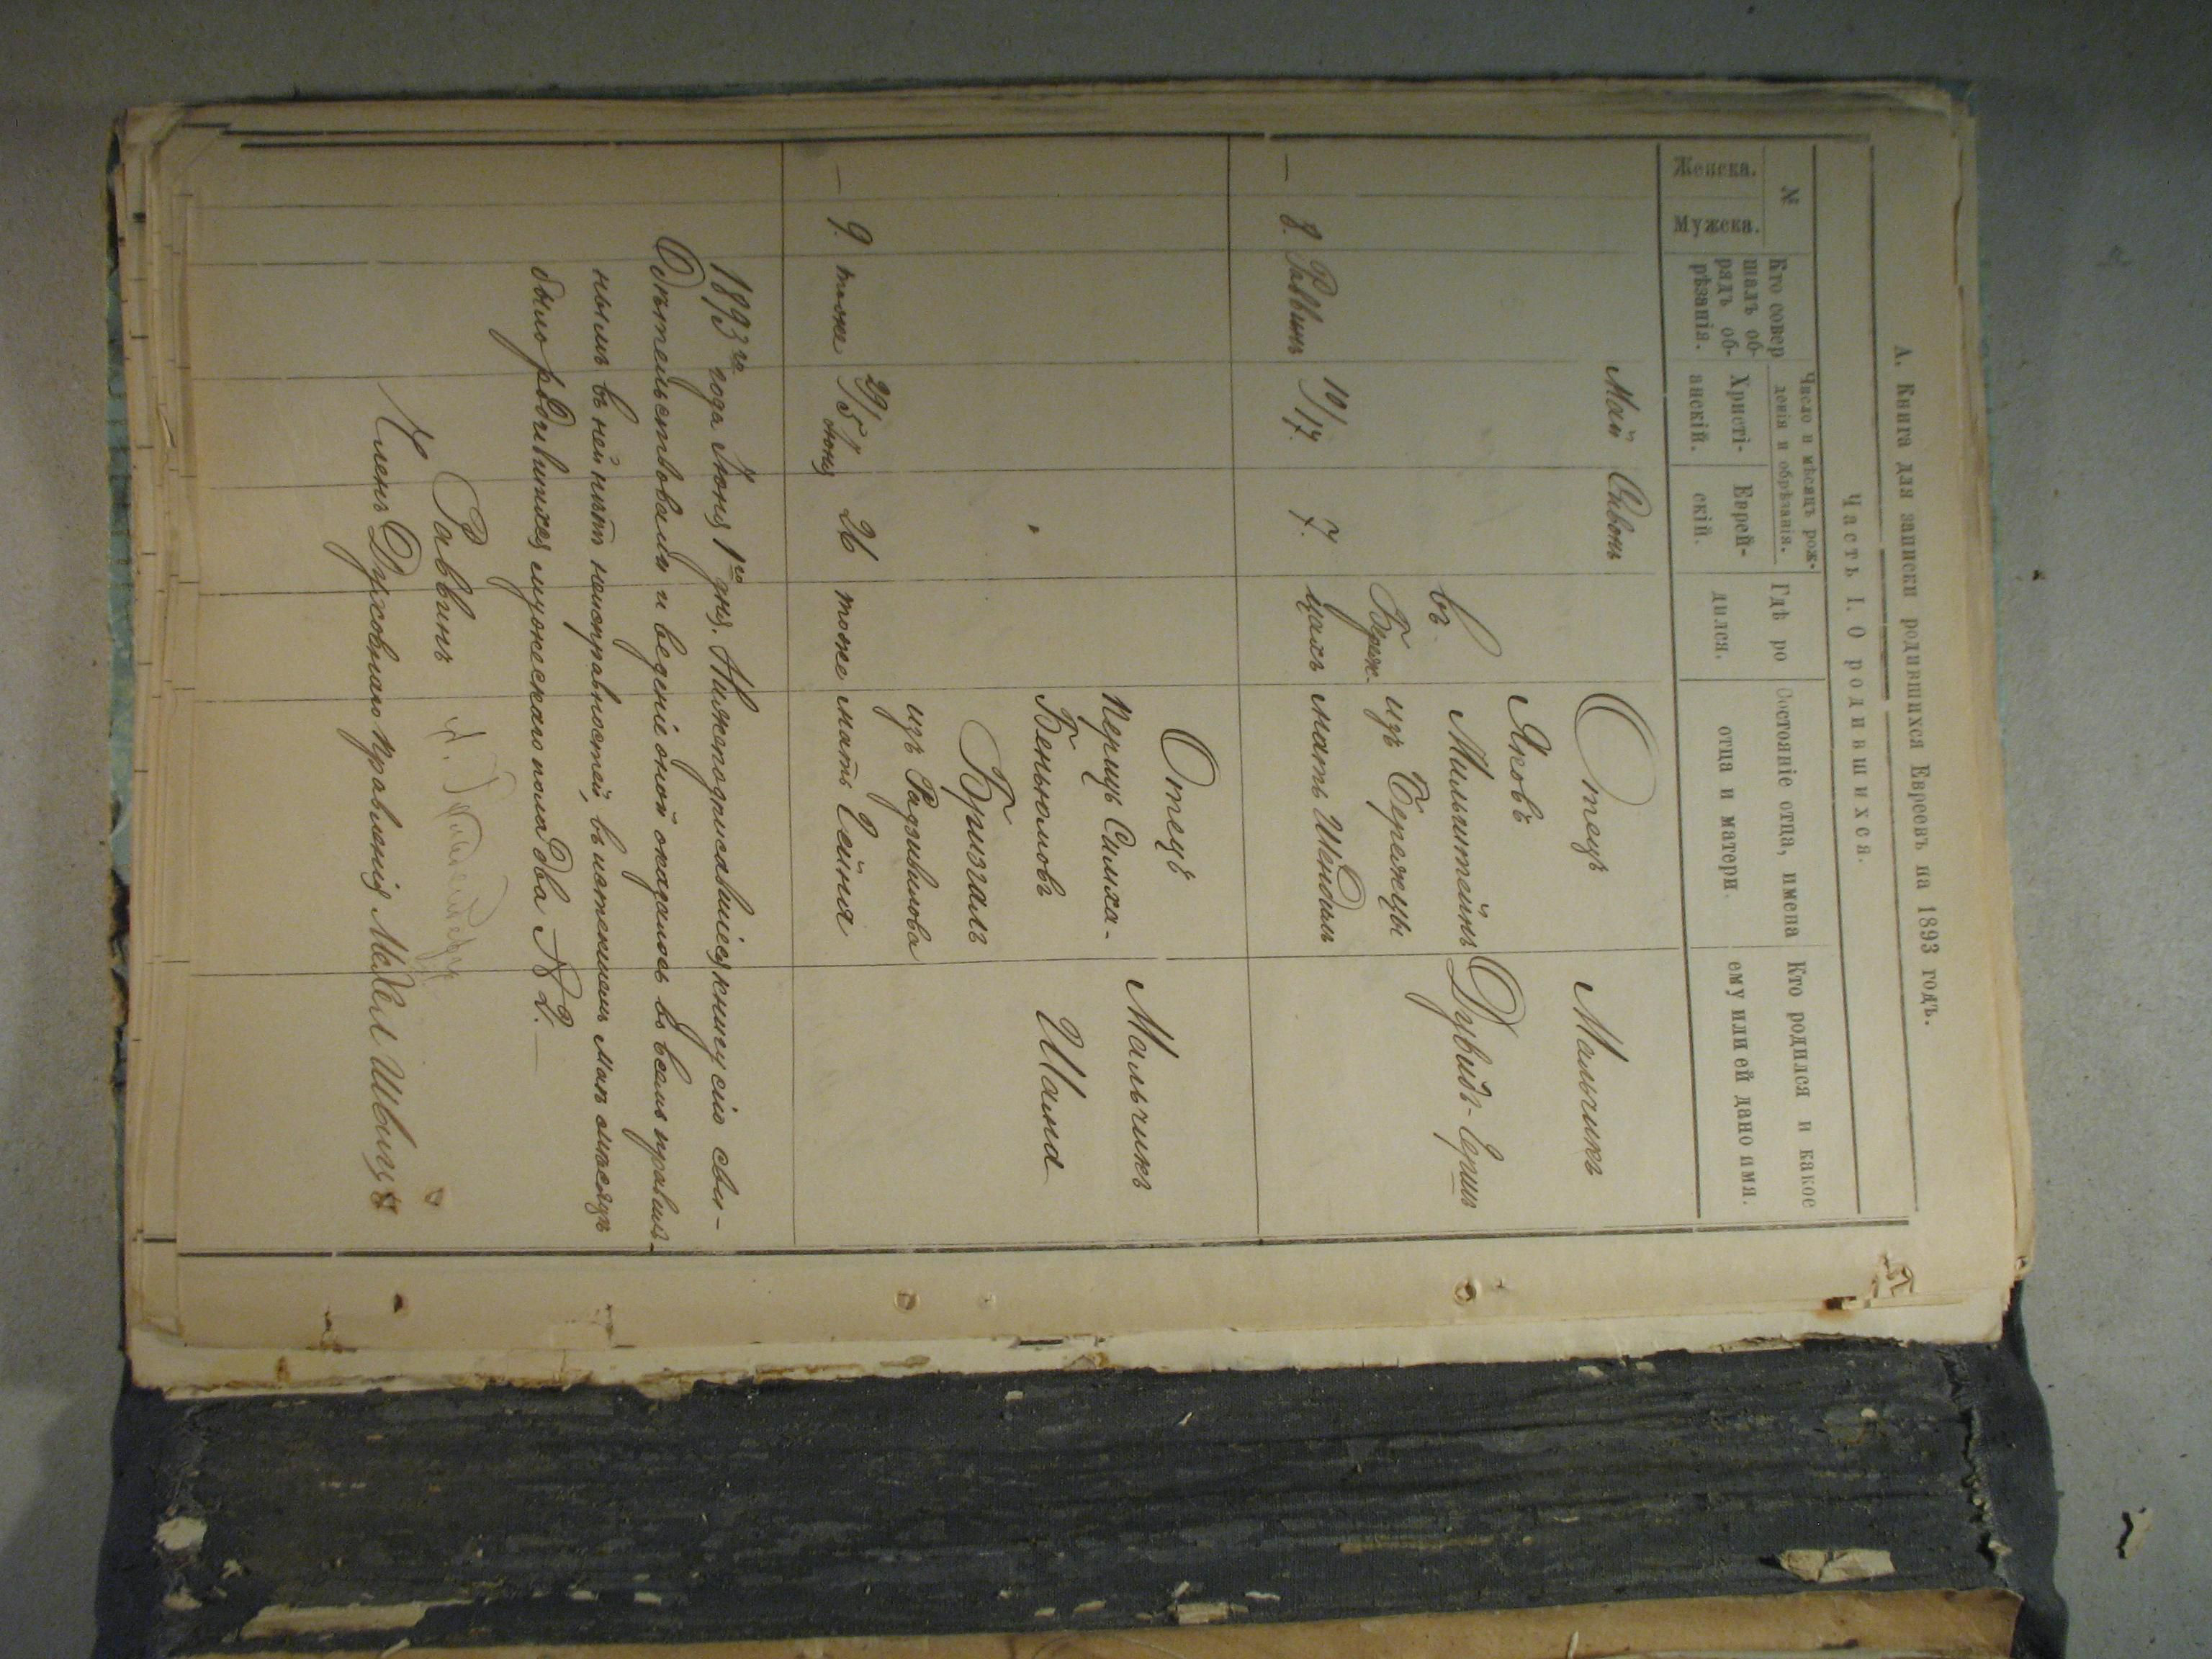 А. Книга для записки родившихся Евреевъ на 1893 годъ.
Часть I. О родившихся.
№
Женска.
Мужска.
Кто совер
шалъ об-
рядъ об-
рѣзанія.
Число и мѣсяцъ рож-
денія и обрѣзанія.
Христі-
анскій.
Еврей-
скій.
Гдѣ ро
дился.
Состояніе отца, имена
отца и матери.
Кто родился и какое
ему или ей дано имя.
Май Сивонъ
–
8.
Раввинъ
10/17.
7.
въ
Береж-
цахъ
Отецъ
Яковъ
Мильштейнъ
изъ Бережцы
мать Шендлъ
Мальчикъ
Дувидъ-Ершъ
–
9.
тоже
29/5 Юня
26
тоже
Отецъ
Перецъ Симха-
Беньюмовъ
Бризгалъ
изъ Радзивилова
мать Сейня
Мальчикъ
Шама
1893го года Юня 1го дня. Нижеподписавшіеся книгу сію сви-
дѣтельствовали и веденіе оной оказалось во всемъ правиль-
нымъ въ ней нѣтъ неисправностей, въ истекшемъ Маѣ мѣсяцѣ
было родившихся мужескаго пола два № 2. –
Раввинъ
Членъ Духовнаго Правленія Мевел Швицъ